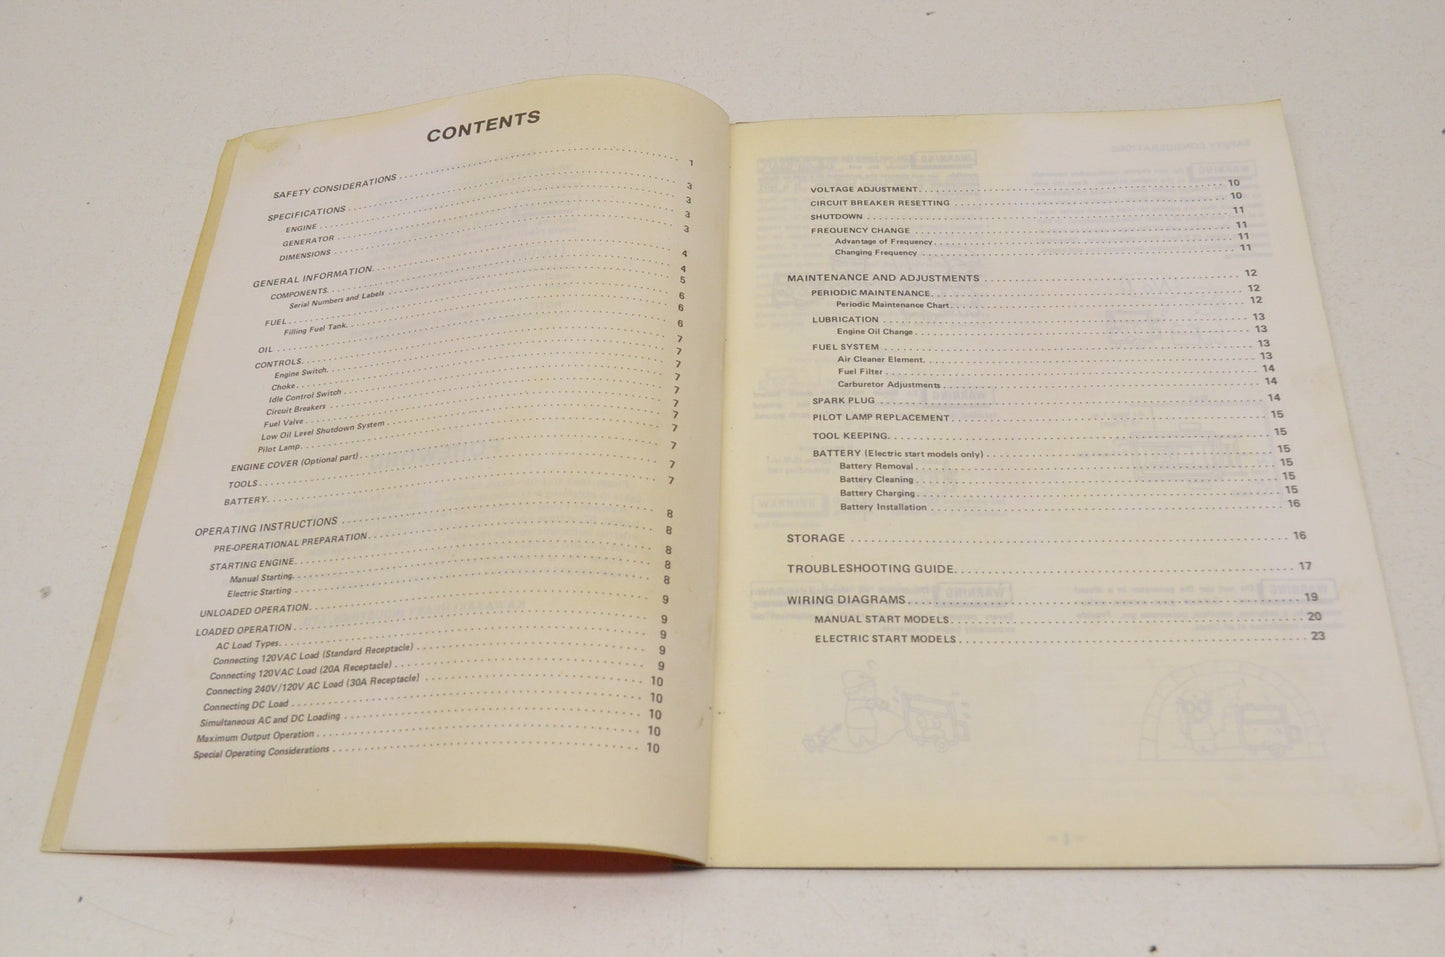 CONTENTS
SAFETY CONSIDERATIONS . . . . . 1
SPECIFICATIONS . . . . . 3
ENGINE . . . . . 3
GENERATOR . . . . . 3
DIMENSIONS . . . . . 3
GENERAL INFORMATION. . . . . 4
COMPONENTS. . . . . 4
Serial Numbers and Labels . . . . . 5
FUEL . . . . . 6
Filling Fuel Tank. . . . . 6
OIL . . . . . 6
CONTROLS. . . . . 7
Engine Switch. . . . . 7
Choke . . . . . 7
Idle Control Switch . . . . . 7
Circuit Breakers . . . . . 7
Fuel Valve . . . . . 7
Low Oil Level Shutdown System . . . . . 7
Pilot Lamp. . . . . 7
ENGINE COVER (Optional part) . . . . . 7
TOOLS . . . . . 7
BATTERY. . . . . 7
OPERATING INSTRUCTIONS . . . . . 8
PRE-OPERATIONAL PREPARATION. . . . . 8
STARTING ENGINE. . . . . 8
Manual Starting. . . . . 8
Electric Starting . . . . . 8
UNLOADED OPERATION. . . . . 9
LOADED OPERATION . . . . . 9
AC Load Types. . . . . 9
Connecting 120VAC Load (Standard Receptacle) . . . . . 9
Connecting 120VAC Load (20A Receptacle) . . . . . 9
Connecting 240V/120V AC Load (30A Receptacle) . . . . . 10
Connecting DC Load . . . . . 10
Simultaneous AC and DC Loading . . . . . 10
Maximum Output Operation . . . . . 10
Special Operating Considerations . . . . . 10
VOLTAGE ADJUSTMENT. . . . . 10
CIRCUIT BREAKER RESETTING . . . . . 10
SHUTDOWN . . . . . 11
FREQUENCY CHANGE . . . . . 11
Advantage of Frequency. . . . . 11
Changing Frequency . . . . . 11
MAINTENANCE AND ADJUSTMENTS . . . . . 12
PERIODIC MAINTENANCE. . . . . 12
Periodic Maintenance Chart. . . . . 12
LUBRICATION . . . . . 13
Engine Oil Change . . . . . 13
FUEL SYSTEM . . . . . 13
Air Cleaner Element. . . . . 13
Fuel Filter . . . . . 14
Carburetor Adjustments . . . . . 14
SPARK PLUG . . . . . 14
PILOT LAMP REPLACEMENT . . . . . 15
TOOL KEEPING. . . . . 15
BATTERY (Electric start models only) . . . . . 15
Battery Removal . . . . . 15
Battery Cleaning . . . . . 15
Battery Charging . . . . . 15
Battery Installation . . . . . 16
STORAGE . . . . . 16
TROUBLESHOOTING GUIDE. . . . . 17
WIRING DIAGRAMS. . . . . 19
MANUAL START MODELS . . . . . 20
ELECTRIC START MODELS . . . . . 23